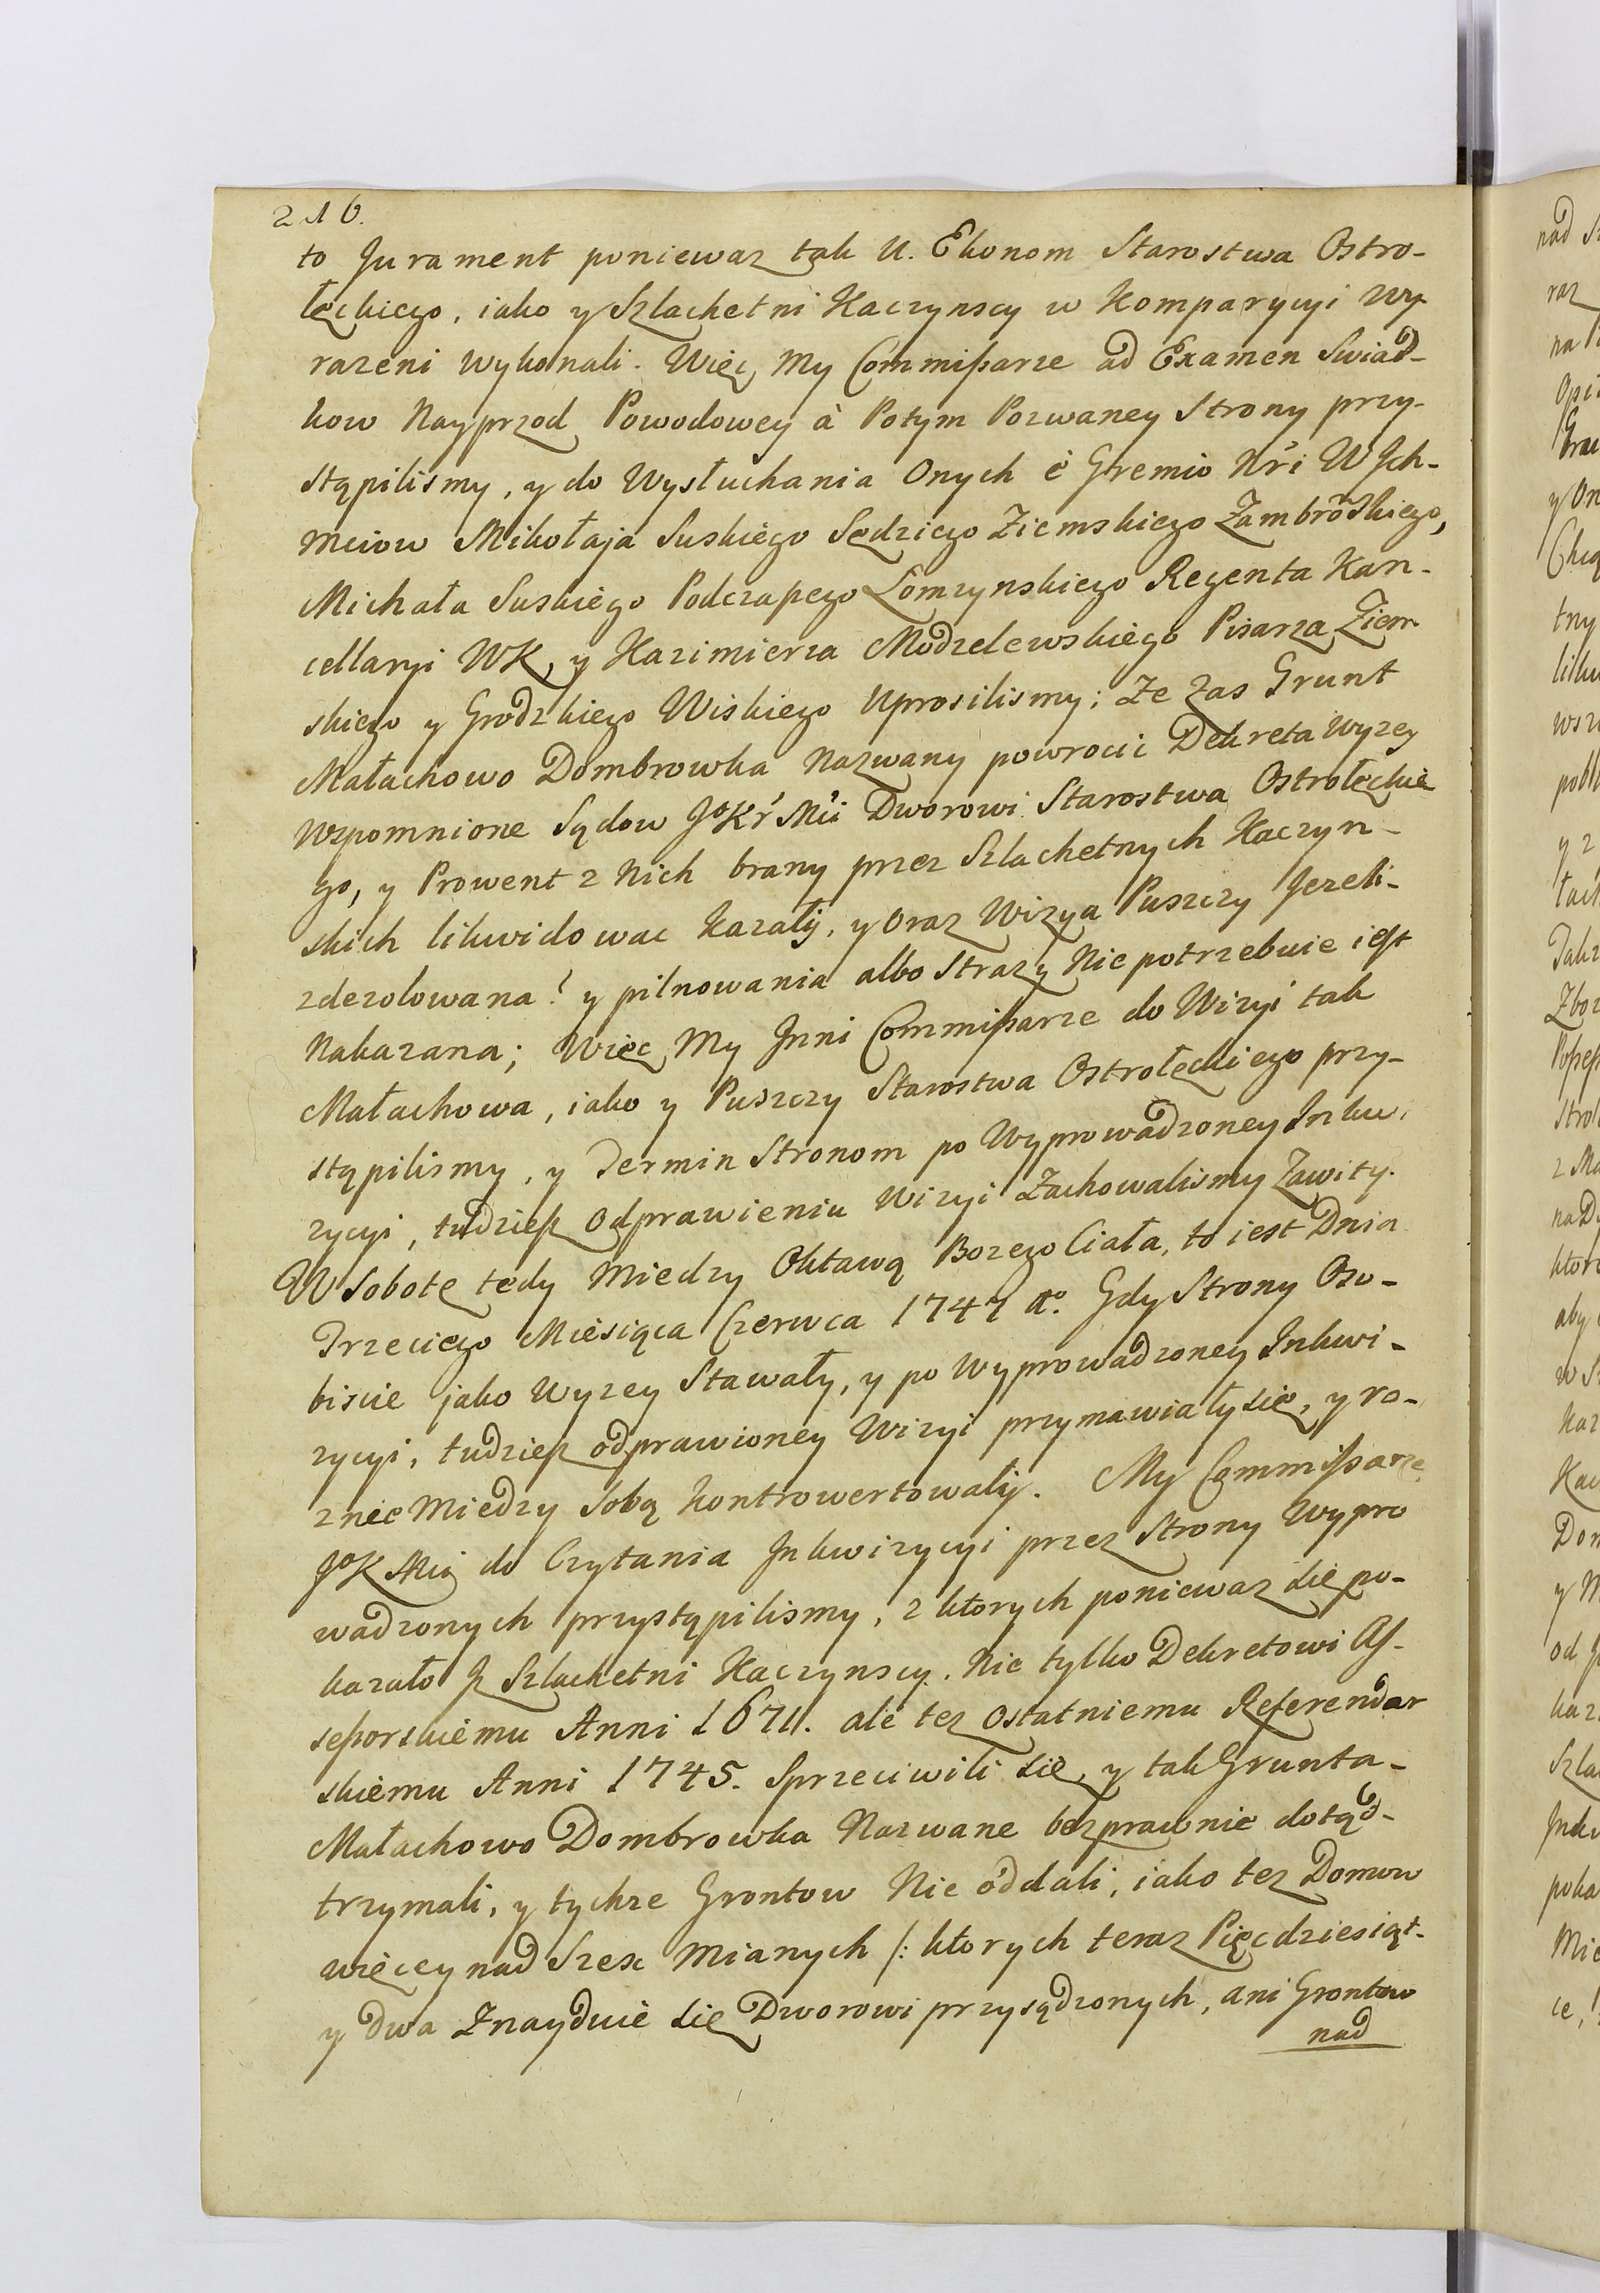 216.
to Jurament poniewaz tak U. Ekonom Starostwa Ostro-
łęckiego, iako y Szlachetni Kaczynscy w Komparycyi wy-
razeni wykonali. Więc My Commißarze ad Examen Swiad-
kow Nayprzod Powodowey à Potym Pozwaney Strony przy-
stąpilismy, y do Wysłuchania Onych è Gremio Nri WJch-
mciow Mikołaja Suskiego Sędziego Ziemskiego Zambrowskiego,
Michała Suskiego Podczaßego Łomzynskiego Regenta Kan-
cellaryi WK, y Kazimierza Modzelewskiego Pisarza Ziem-
skiego y Grodzkiego Wiskiego Uprosilismy; Ze Zas Grunt
Małachowo Dombrowka Nazwany powrocic Dekreta wyzey
wzpomnione Sądow JoKr Mci Dworowi Starostwa Ostrołęckie
go, y Prowent z Nich brany przez Szlachetnych Kaczyn-
skich likwidowac Kazały, y oraz Wizya Puszczy Jezeli-
zdezolowana? y pilnowania albo Strazy Nie potrzebuie iest
Nakazana; Więc My Inni Commißarze do Wizyi tak
Małachowa, iako y Puszczy Starostwa Ostrołęckiego przy-
stąpilismy, y Termin Stronom po Wyprowadzoney Inkwi
zycyi, tudzieß Odprawieniu Wizyi Zachowalismy Zawity.
W Sobotę tedy Miedzy Oktawą Bozego Ciała, to iest Dnia
Trzeciego Miesiąca Czerwca 1747 Ao. Gdy Strony Oso-
biscie jako Wyzey Stawały, y po Wyprowadzoney Inkwi-
zycyi, tudzieß odprawioney Wizyi przymawiały się, y ro-
znie Miedzy Sobą Kontrowertowały. My Commißarze
JoK Mci do Czytania Inkwizycyi przez Strony Wypro
wadzonych przystąpilismy, z ktorych poniewaz się po-
kazało Jz Szlachetni Kaczynscy. Nie tylko Dekretowi As-
seßorskiemu Anni 1671. ale tez Ostatniemu Referendar
skiemu Anni 1745. Sprzeciwili się, y tak Grunta-
Małachowo Dombrowka Nazwane bezprawnie dotąd-
trzymali, y tychze Grontow Nie oddali, iako tez Domow
więcey nad Szesc Mianych /: ktorych teraz Pięcdziesiąt-
y dwa Znayduie się Dworowi przysądzonych, ani Grontow
nad